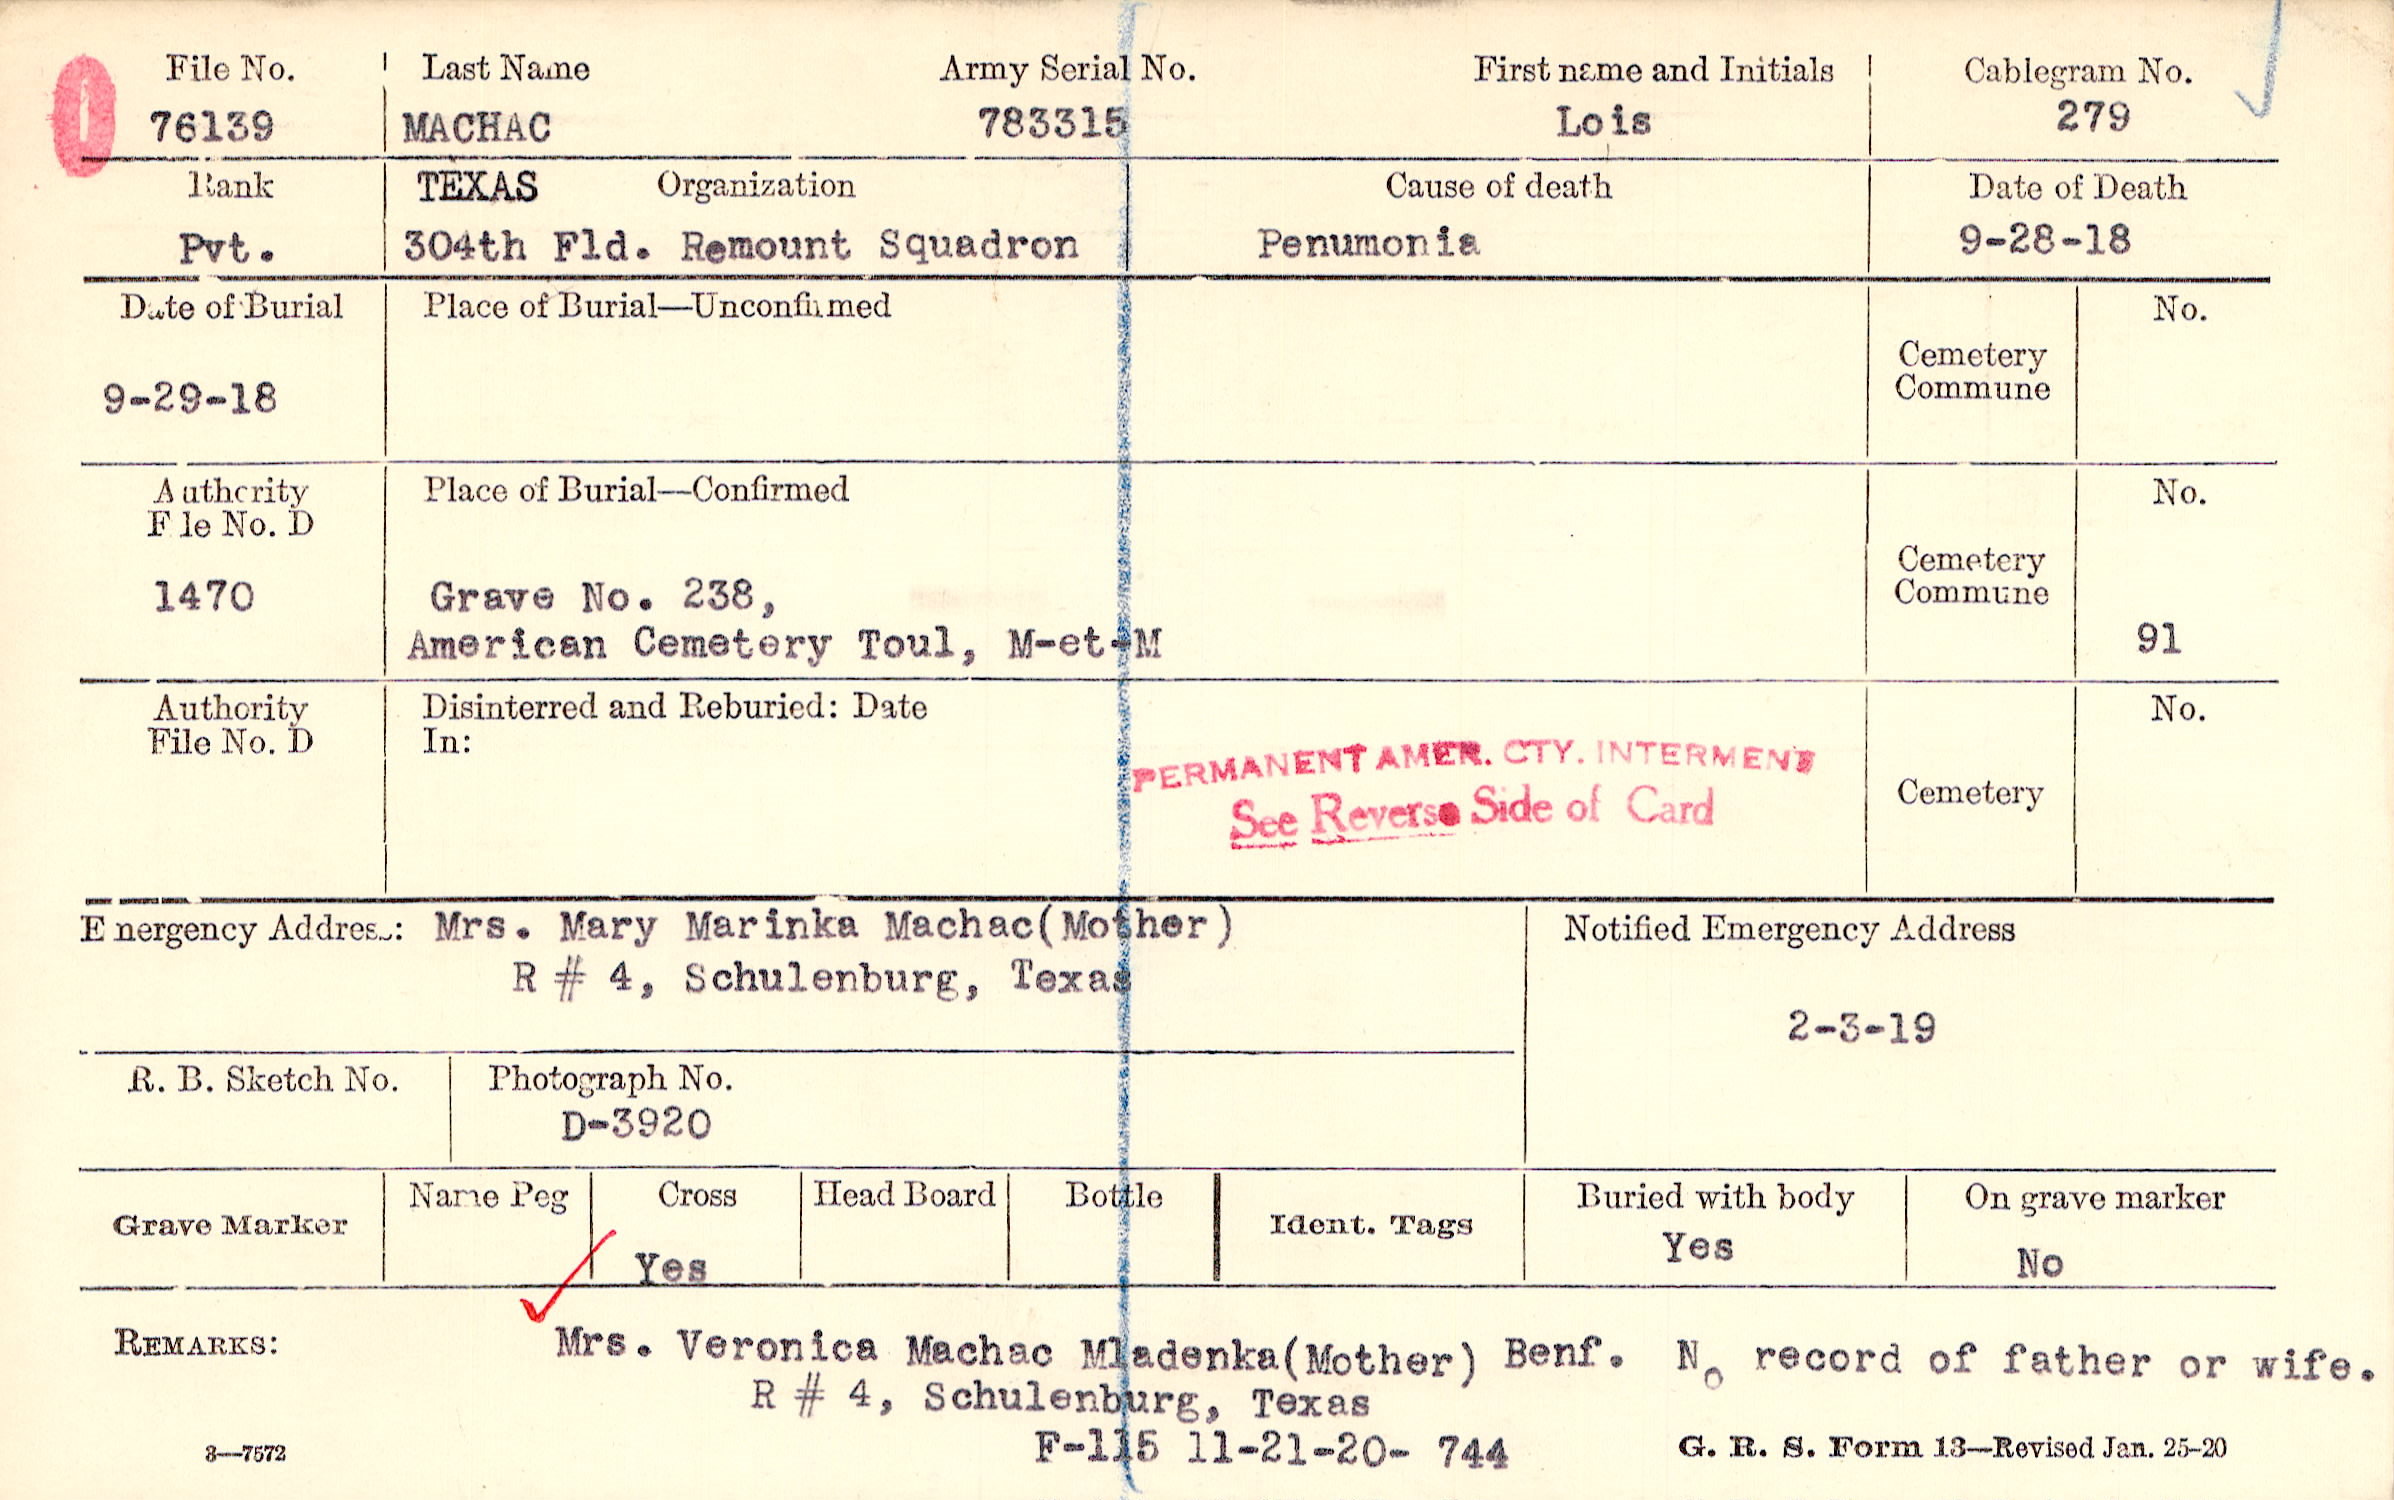 File No. Last Name Army Serial No. First name and Initials Cablegram No.
76139 MACHAC 783315 Lois 279
Rank TEXAS Organization Cause of death Date of Death
Pvt. 304th Fld. Remount Squadron Penumonia 9-28-18
Date of Burial Place of Burial—Unconfirmed No.
Cemetery
Commune
9-29-18
Authority Place of Burial—Confirmed No.
File No. D
Cemetery
Commune
1470 Grave No. 238,
American Cemetery Toul, M-et-M 91
Authority Disinterred and Reburied: Date No.
File No. D In:
PERMANENT AMER. CTY. INTERMENT
See Reverse Side of Card
Cemetery
Emergency Address: Mrs. Mary Marinka Machac(Mother) Notified Emergency Address
R # 4, Schulenburg, Texas
2-3-19
R. B. Sketch No. Photograph No.
D-3920
Grave Marker Name Peg Cross Head Board Bottle Ident. Tags Buried with body On grave marker
Yes Yes No
REMARKS: Mrs. Veronica Machac Mladenka(Mother) Benf. No record of father or wife.
R # 4, Schulenburg, Texas
F-115 11-21-20- 744
3—7572 G. R. S. Form 13—Revised Jan. 25-20